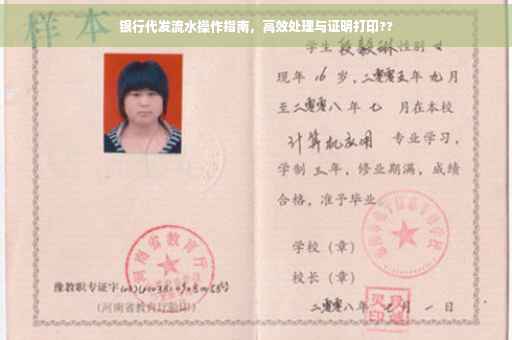 银行代发流水操作指南，高效处理与证明打印??
样本
学生段毅琳性别女
现年16岁，二零零五年九月
至二零零八年七月在本校
计算机应用 专业学习，
学制三年，修业期满，成绩
合格，准予毕业
学校（章）
校长（章）
二零零八年七月一日
河南省教育厅
豫教职专证字
(河南省教育厅验印)